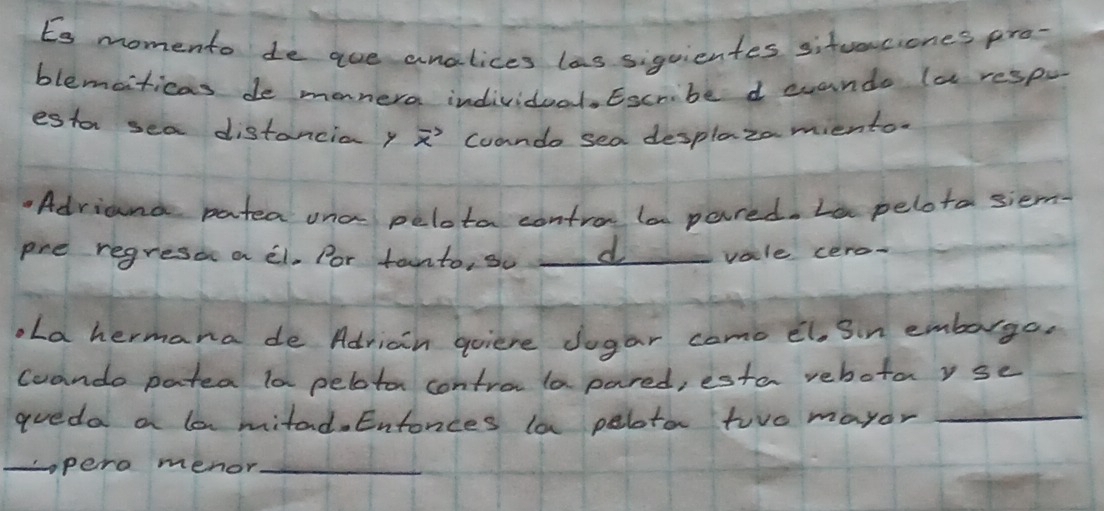 Es momento de que analices las siguientes situaciones pro-
blemáticas de mannera individual. Escribe d cuando la respu-
esta sea distancia y x⃗ cuando sea desplazamiento.
•Adriana patea una pelota contra la pared. La pelota siem-
pre regresa a él. Por tanto, su ___d___ vale cero-
•La hermana de Adrián quiere Jugar como él. Sin embargo.
cuando patea la pelota contra la pared, esta rebota y se
queda a la mitad. Entonces la pelota tuvo mayor ______
___, pero menor ______